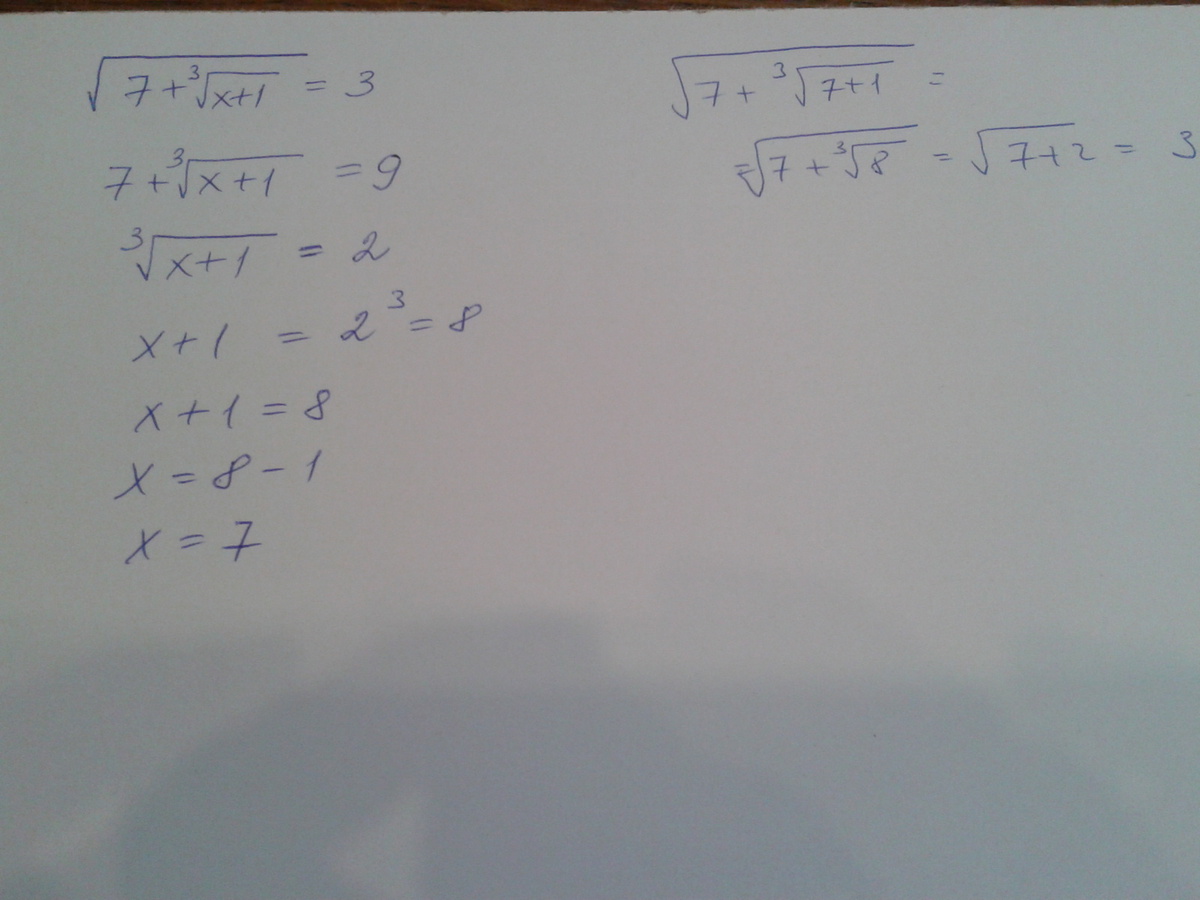 √(7+∛(x+1)) = 3
7+∛(x+1) = 9
∛(x+1) = 2
x+1 = 2³ = 8
x+1 = 8
x = 8 - 1
x = 7
√(7+∛(7+1)) =
= √(7+∛8) = √(7+2) = 3